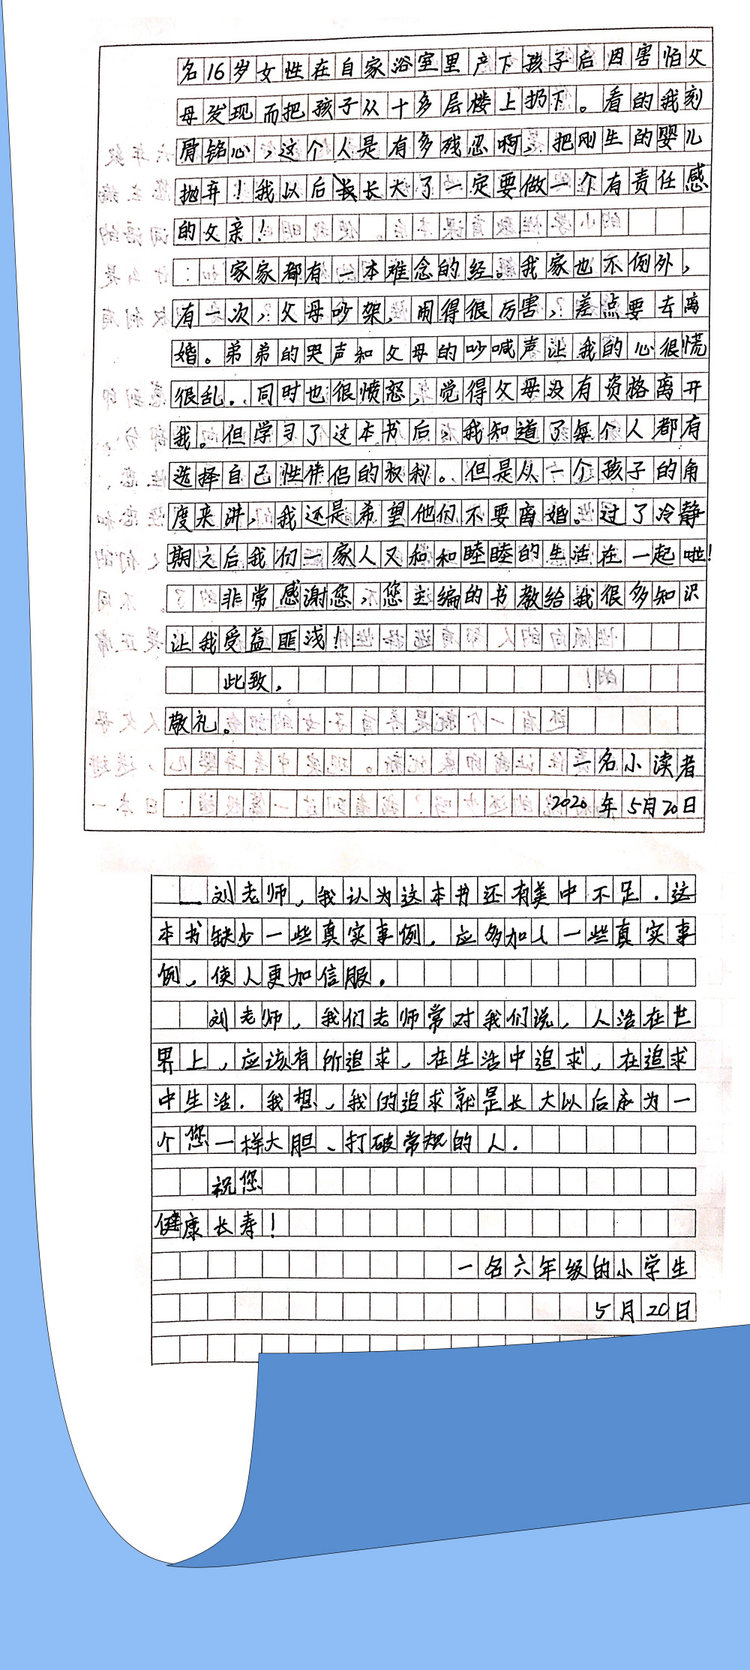 名16岁女性在自家浴室里产下孩子后因害怕父
母发现而把孩子从十多层楼上扔下。看的我刻
骨铭心，这个人是有多残忍啊，把刚生的婴儿
抛弃！我以后长大了一定要做一个有责任感
的父亲！
家家都有一本难念的经。我家也不例外，
有一次，父母吵架，闹得很厉害，差点要去离
婚。弟弟的哭声和父母的吵喊声让我的心很慌
很乱。同时也很愤怒，觉得父母没有资格离开
我。但学习了这本书后，我知道了每个人都有
选择自己性伴侣的权利。但是从一个孩子的角
度来讲，我还是希望他们不要离婚。过了冷静
期之后我们一家人又和和睦睦的生活在一起啦！
非常感谢您，您主编的书教给我很多知识
让我受益匪浅！
此致，
敬礼。
一名小读者
2020年5月20日
刘老师，我认为这本书还有美中不足．这
本书缺少一些真实事例．应多加入一些真实事
例，使人更加信服．
刘老师，我们老师常对我们说，人活在世
界上，应该有所追求，在生活中追求，在追求
中生活．我想，我的追求就是长大以后成为一
个您一样大胆、打破常规的人．
祝您
健康长寿！
一名六年级的小学生
5月20日